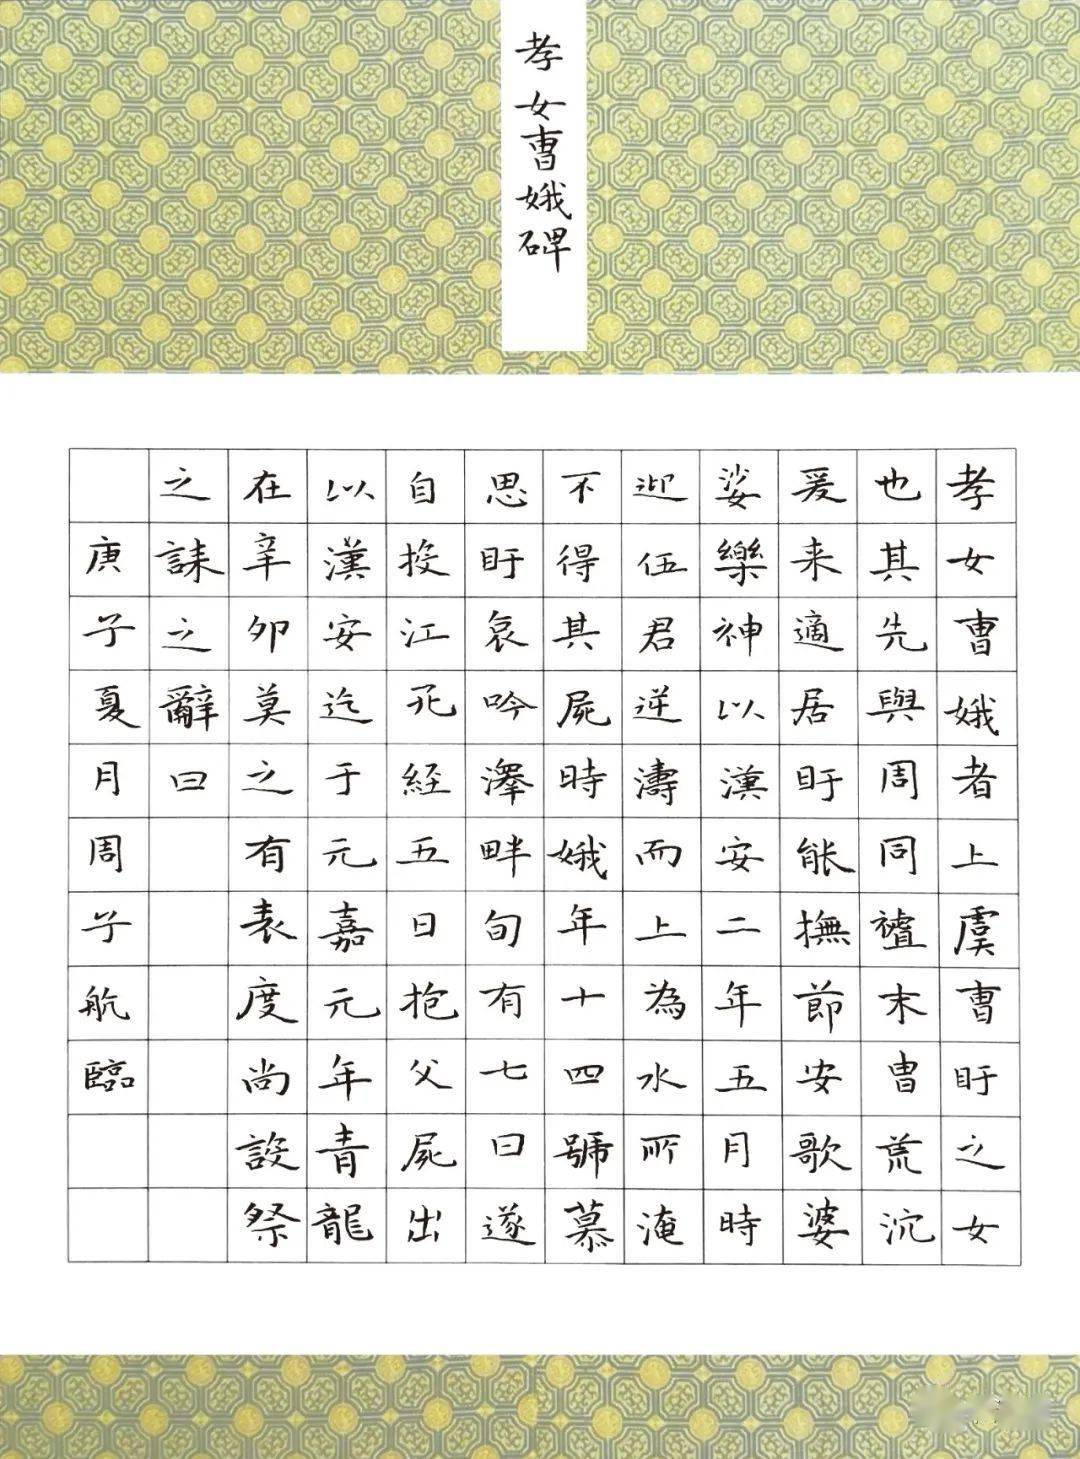 孝女曺娥碑
孝女曺娥者上虞曺盱之女
也其先與周同禇末曺荒沉
爰来適居盱能撫節安歌婆
娑樂神以漢安二年五月時
迎伍君逆濤而上為水所淹
不得其屍時娥年十四號慕
思盱哀吟澤畔旬有七日遂
自投江死經五日抱父屍出
以漢安迄于元嘉元年青龍
在辛卯莫之有表度尚設祭
之誄之辭曰
庚子夏月周子航臨